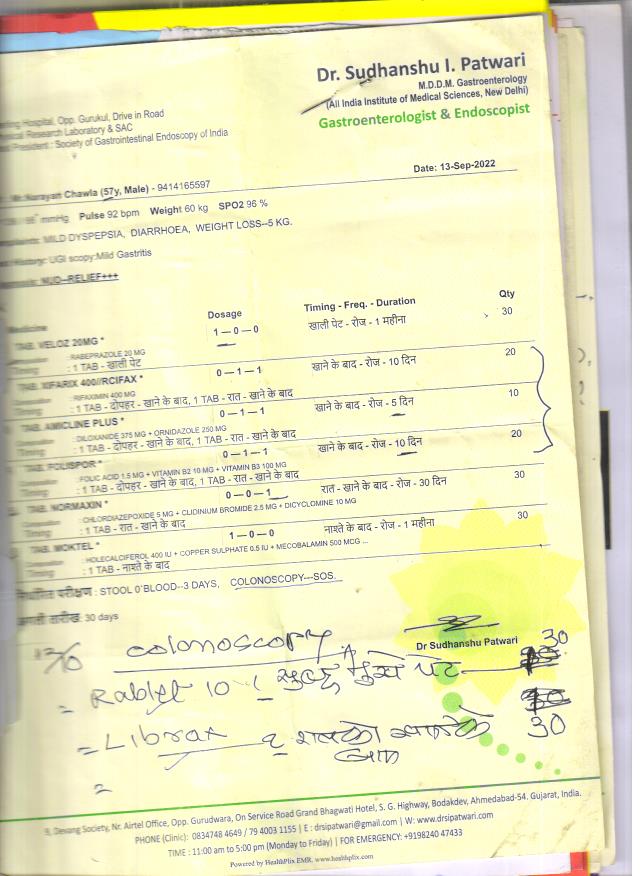 Dr. Sudhanshu I. Patwari
M.D.D.M. Gastroenterology
(All India Institute of Medical Sciences, New Delhi)
Gastroenterologist & Endoscopist
Hospital, Opp. Gurukul, Drive in Road
Research Laboratory & SAC
President : Society of Gastrointestinal Endoscopy of India
Date: 13-Sep-2022
Mr.Narayan Chawla (57y, Male) - 9414165597
mmHg Pulse 92 bpm Weight 60 kg SPO2 96 %
MILD DYSPEPSIA, DIARRHOEA, WEIGHT LOSS--5 KG.
History: UGI scopy:Mild Gastritis
NUD--RELIEF+++
Medicine Dosage Timing - Freq. - Duration Qty
TAB. VELOZ 20MG * 1 – 0 – 0 खाली पेट - रोज - 1 महीना 30
: RABEPRAZOLE 20 MG
: 1 TAB - खाली पेट
TAB. XIFARIX 400//RCIFAX * 0 – 1 – 1 खाने के बाद - रोज - 10 दिन 20
: RIFAXIMIN 400 MG
: 1 TAB - दोपहर - खाने के बाद, 1 TAB - रात - खाने के बाद
TAB. AMICLINE PLUS * 0 – 1 – 1 खाने के बाद - रोज - 5 दिन 10
: DILOXANIDE 375 MG + ORNIDAZOLE 250 MG
: 1 TAB - दोपहर - खाने के बाद, 1 TAB - रात - खाने के बाद
TAB. FOLISPOR * 0 – 1 – 1 खाने के बाद - रोज - 10 दिन 20
: FOLIC ACID 1.5 MG + VITAMIN B2 10 MG + VITAMIN B3 100 MG
: 1 TAB - दोपहर - खाने के बाद, 1 TAB - रात - खाने के बाद
TAB. NORMAXIN * 0 – 0 – 1 रात - खाने के बाद - रोज - 30 दिन 30
: CHLORDIAZEPOXIDE 5 MG + CLIDINIUM BROMIDE 2.5 MG + DICYCLOMINE 10 MG
: 1 TAB - रात - खाने के बाद
TAB. MOKTEL * 1 – 0 – 0 नाश्ते के बाद - रोज - 1 महीना 30
HOLECALCIFEROL 400 IU + COPPER SULPHATE 0.5 IU + MECOBALAMIN 500 MCG ...
: 1 TAB - नाश्ते के बाद
परीक्षण : STOOL O'BLOOD--3 DAYS, COLONOSCOPY---SOS.
तारीख: 30 days
Dr Sudhanshu Patwari
colonoscopy
= Rablet 10 1 सुबह भुखे पेट 30
= Librax रातको खानेके बाद 30
Devang Society, Nr. Airtel Office, Opp. Gurudwara, On Service Road Grand Bhagwati Hotel, S. G. Highway, Bodakdev, Ahmedabad-54. Gujarat, India.
PHONE (Clinic): 0834748 4649 / 79 4003 1155 | E : drsipatwari@gmail.com | W: www.drsipatwari.com
TIME : 11:00 am to 5:00 pm (Monday to Friday) | FOR EMERGENCY: +919824​0 47433
Powered by HealthPlix EMR. www.healthplix.com